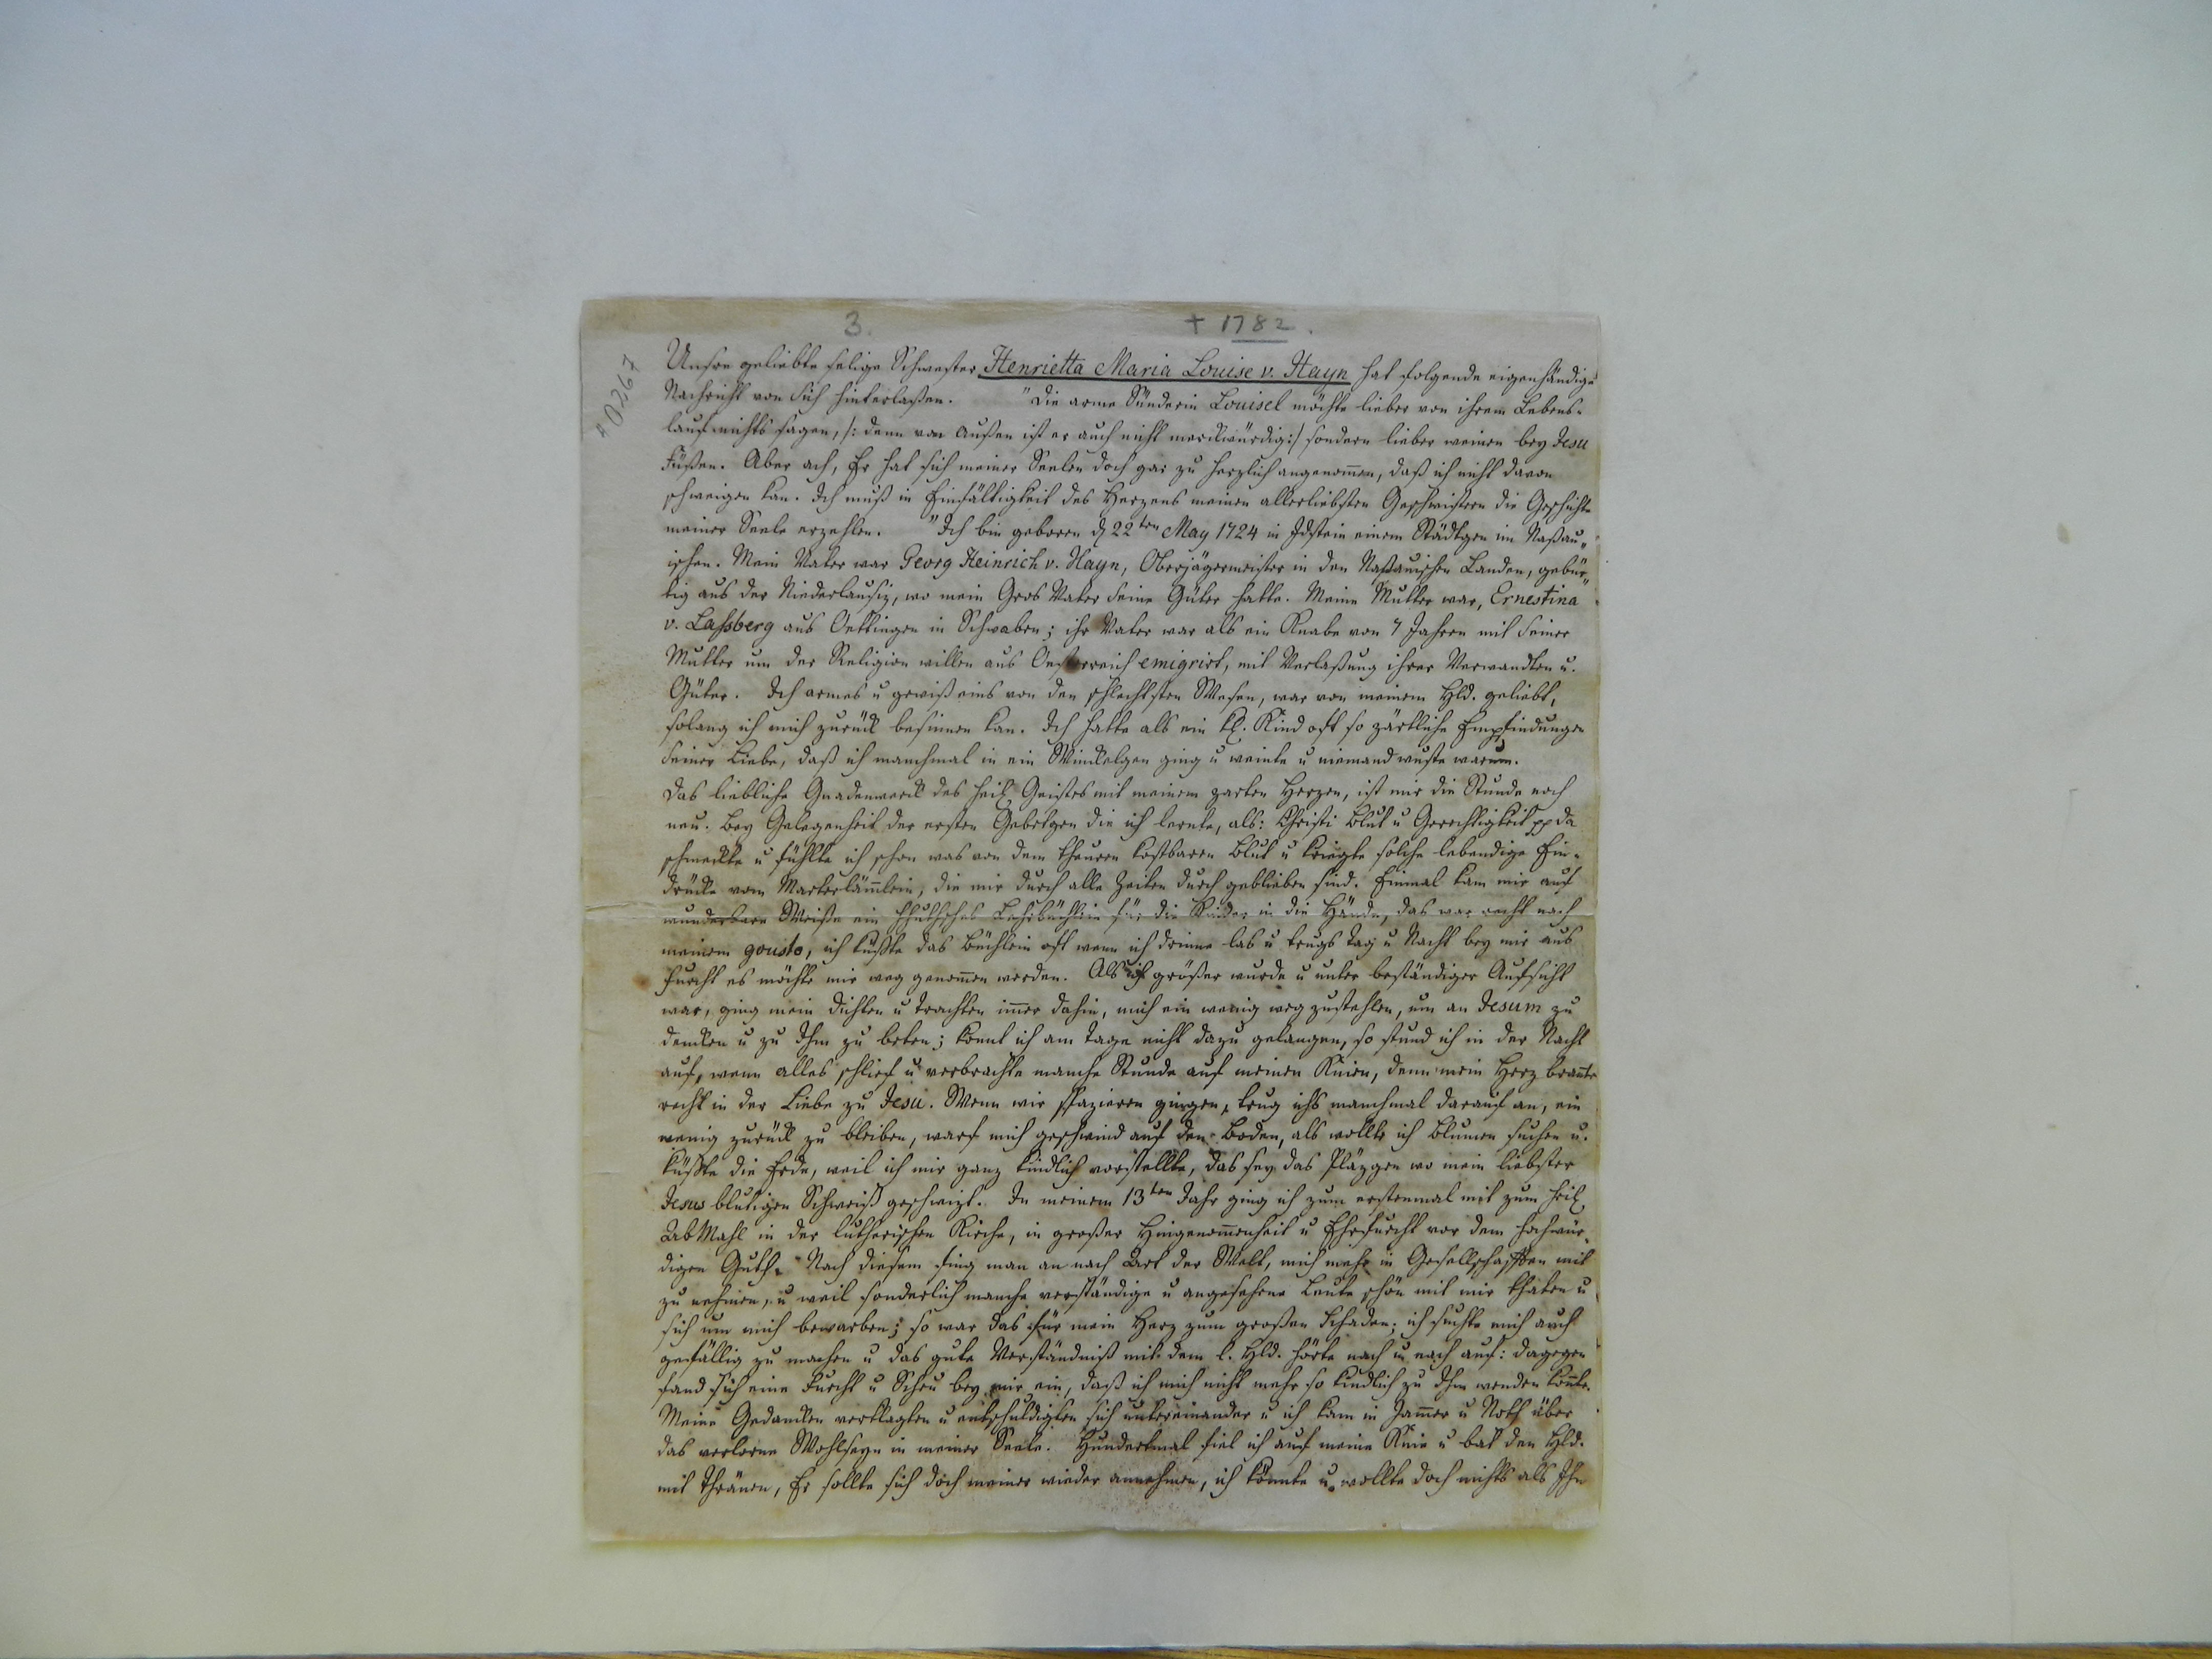 3.
+ 1782.
A 0267
Unsre geliebte selige Schwester Henrietta Maria Louise v. Hayn hat folgende eigenhändige
Nachricht von sich hinterlaßen. "Die arme Sünderin Louisel möchte lieber von ihrem Lebens-
lauf nichts sagen, /: denn von außen ist er auch nicht merckwürdig :/ sondern lieber weinen bey Jesu
Füßen. Aber ach, Er hat sich meiner Seelen doch gar zu herzlich angenom̅en, daß ich nicht davon
schweigen kan. Ich muß in Einfältigkeit des Herzens meinen allerliebsten Geschwistern die Geschichte
meiner Seele erzehlen. "Ich bin geboren d 22ten May 1724 in Idstein einem Städtgen im Naßau„
ischen. Mein Vater war Georg Heinrich v. Hayn, Oberjägermeister in den Naßauischen Landen, gebür„
tig aus der Niederlausiz, wo mein Gros Vater seine Güter hatte. Meine Mutter war, Ernestina
v. Lassberg aus Oettingen in Schwaben; ihr Vater war als ein Knabe von 7 Jahren mit seiner
Mutter um der Religion willen aus Oesterreich emigrirt, mit Verlaßung ihrer Verwandten u.
Güter. Ich armes u gewiß eins von den schlechtsten Wesen, war von meinem Hld. geliebt,
solang ich mich zurück besinnen kan. Ich hatte als ein kl. Kind oft so zärtliche Empfindungen
seiner Liebe, daß ich manchmal in ein Winckelgen ging u weinte u niemand wuste warum.
Das liebliche Gnadenwerck des heil. Geistes mit meinem zarten Herzen, ist mir die Stunde noch
neu. Bey Gelegenheit der ersten Gebetgen die ich lernte, als: Christi Blut u Gerechtigkeit pp da
schmeckte u fühlte ich schon was von dem theuren kostbaren Blut u kriegte solche lebendige Ein-
drücke vom Marterläm̅lein, die mir durch alle Zeiten durch geblieben sind. Einmal kam mir auf
wunderbare Weise ein Lehrbüchlein für die Kinder in die Hände, das war recht nach
meinem gousto, ich küßte das Büchlein oft wenn ich drinne las u trugs Tag u Nacht bey mir aus
Furcht es möchte mir weg genom̅en werden. Als ich größer wurde u unter beständiger Aufsicht
war, ging mein Dichten u Trachten im̅er dahin, mich ein wenig wegzustehlen, um an Jesum zu
dencken u zu Ihm zu beten; konnt ich am Tage nicht dazu gelangen, so stund ich in der Nacht
auf, wenn alles schlief u verbrachte manche Stunde auf meinen Knien, denn mein Herz bran̅te
recht in der Liebe zu Jesu. Wenn wir spazieren gingen, trug ichs manchmal darauf an, ein
wenig zurück zu bleiben, warf mich geschwind auf den Boden, als wollte ich Blumen suchen u.
küßte die Erde, weil ich mir ganz kindlich vorstellte, das sey das Pläzgen wo mein liebster
Jesus blutigen Schweiß geschwizt. In meinem 13ten Jahr ging ich zum erstenmal mit zum heil.
AbMahl in der lutherischen Kirche, in großer Hingenom̅enheit u Ehrfurcht vor dem hochwür„
digen Guth. Nach diesem fing man an nach Art der Welt, mich mehr in Gesellschafften mit
zu nehmen, u weil sonderlich manche verständige u angesehene Leute schön mit mir thaten u
sich um mich bewarben; so war das für mein Herz zum großen Schaden; ich suchte mich auch
gefällig zu machen u das gute Verständniß mit dem l. Hld. hörte nach u nach auf: dagegen
fand sich eine Furcht u Scheu bey mir ein, daß ich mich nicht mehr so kindlich zu Ihm wenden kon̅te.
Meine Gedancken verklagten u entschuldigten sich untereinander u ich kam in Jam̅er u Noth über
das verlorne Wohlseyn in meiner Seele. Hundertmal fiel ich auf meine Knie u bat den Hld.
mit Thränen, Er sollte sich doch meiner wieder annehmen, ich könnte u. wollte doch nichts als Ihn